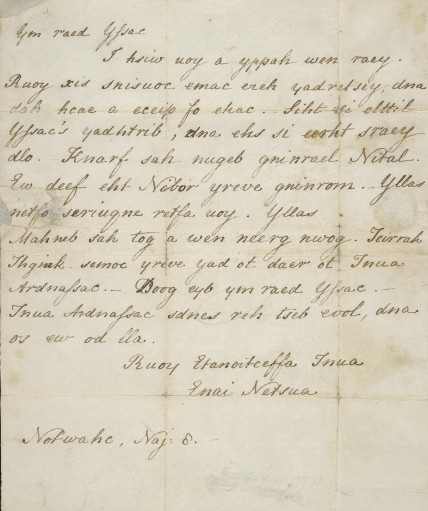 Ym raed Yssac
I hsiw uoy a yppah wen raey.
Ruoy xis snisuoc emac ereh yadretsey, dna
dah hcae a eceip fo ekac. - Siht si elttil
Yssac's yadhtrib, dna ehs si eerht sraey
dlo. Knarf sah nugeb gninrael Nital.
Ew deef eht Nibor yreve gninrom. - Yllas
netfo seriuqne retfa uoy. Yllas
Mahneb sah tog a wen neerg nwog. Teirrah
Thgink semoc yreve yad ot daer ot Tnua
Ardnassac. - Doog eyb ym raed Yssac. -
Tnua Ardnassac sdnes reh tseb evol, dna
os ew od lla.
Ruoy Etanoitceffa Tnua
Enaj Netsua
Notwahc, Naj: 8. -